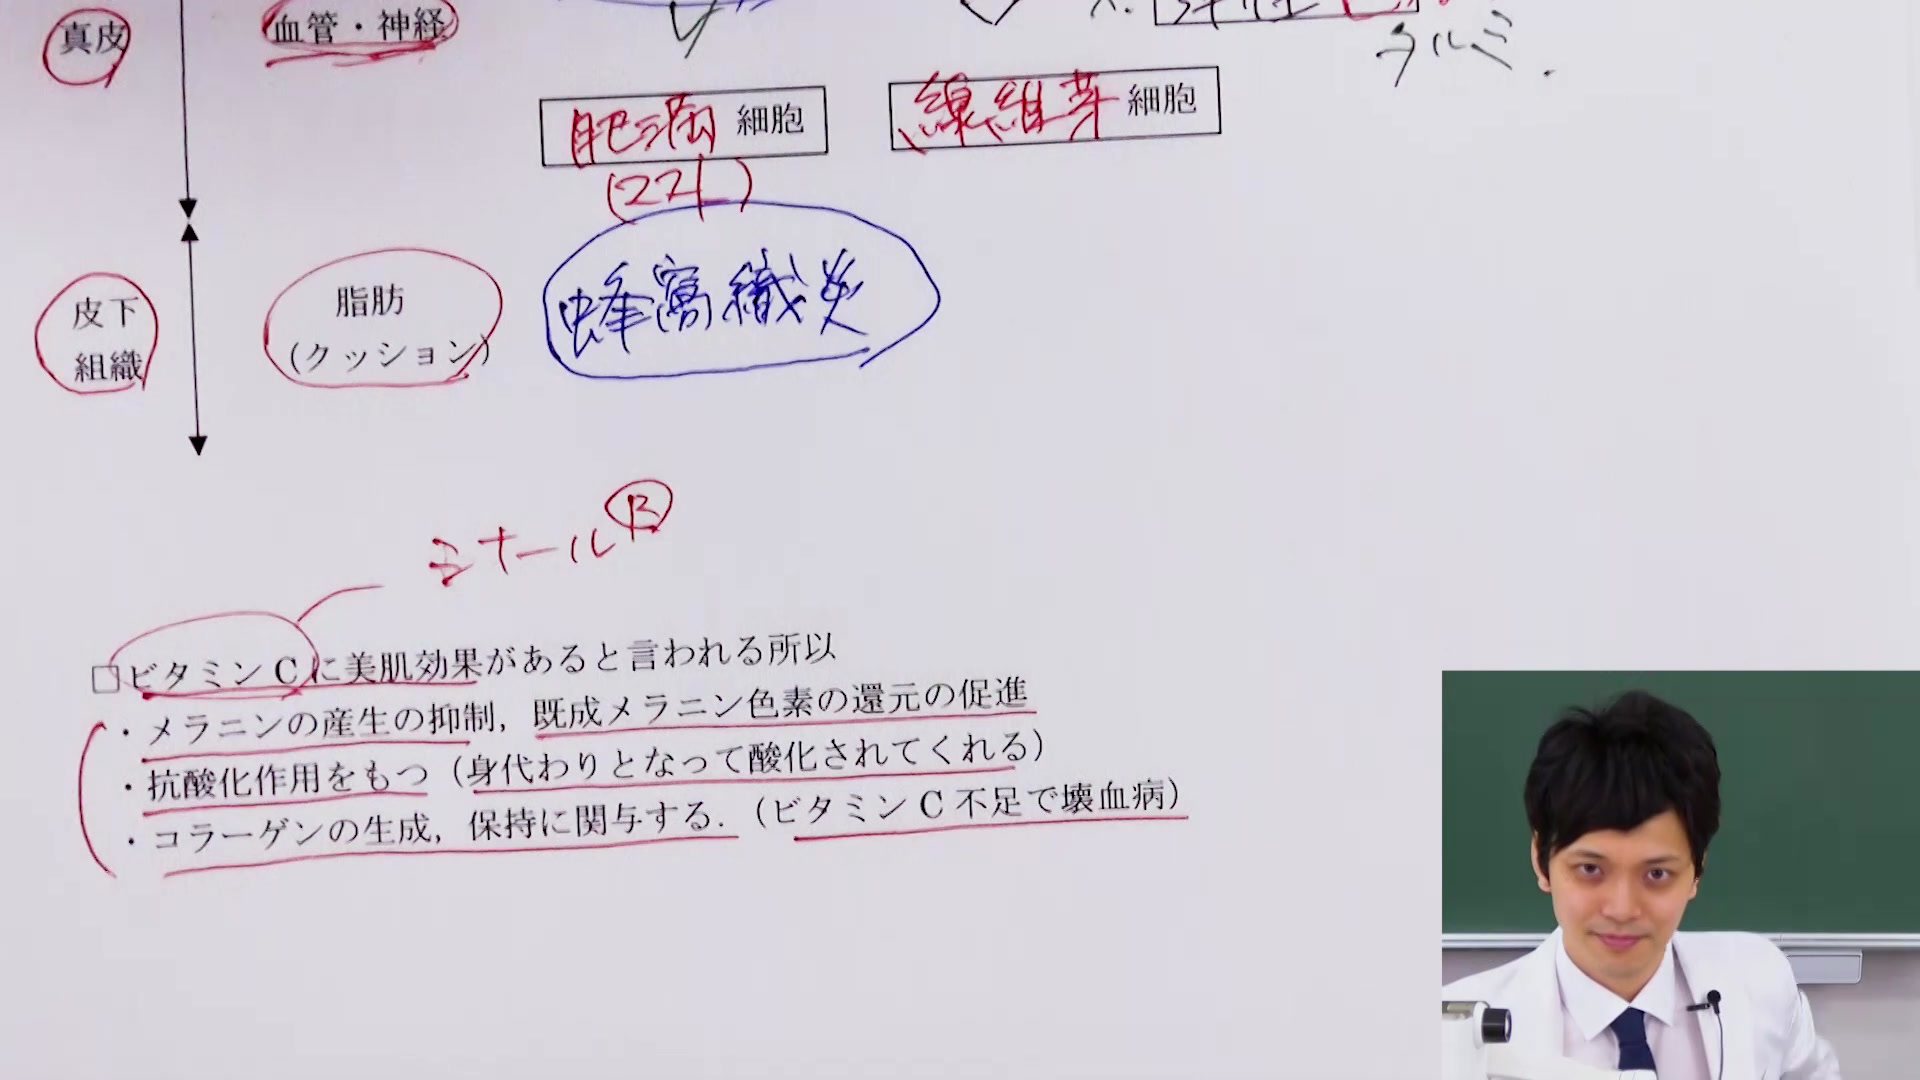 真皮
血管・神経
タルミ.
肥満細胞
線維芽細胞
皮下
組織
脂肪
(クッション)
蜂窩織炎
ミナールⓇ
□ビタミンCに美肌効果があると言われる所以
・メラニンの産生の抑制,既成メラニン色素の還元の促進
・抗酸化作用をもつ(身代わりとなって酸化されてくれる)
・コラーゲンの生成,保持に関与する.(ビタミンC不足で壊血病)